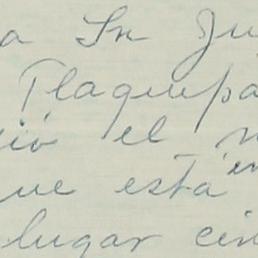 a Sn Ju
Tlaquepa
ió el
que está en
lugar cin